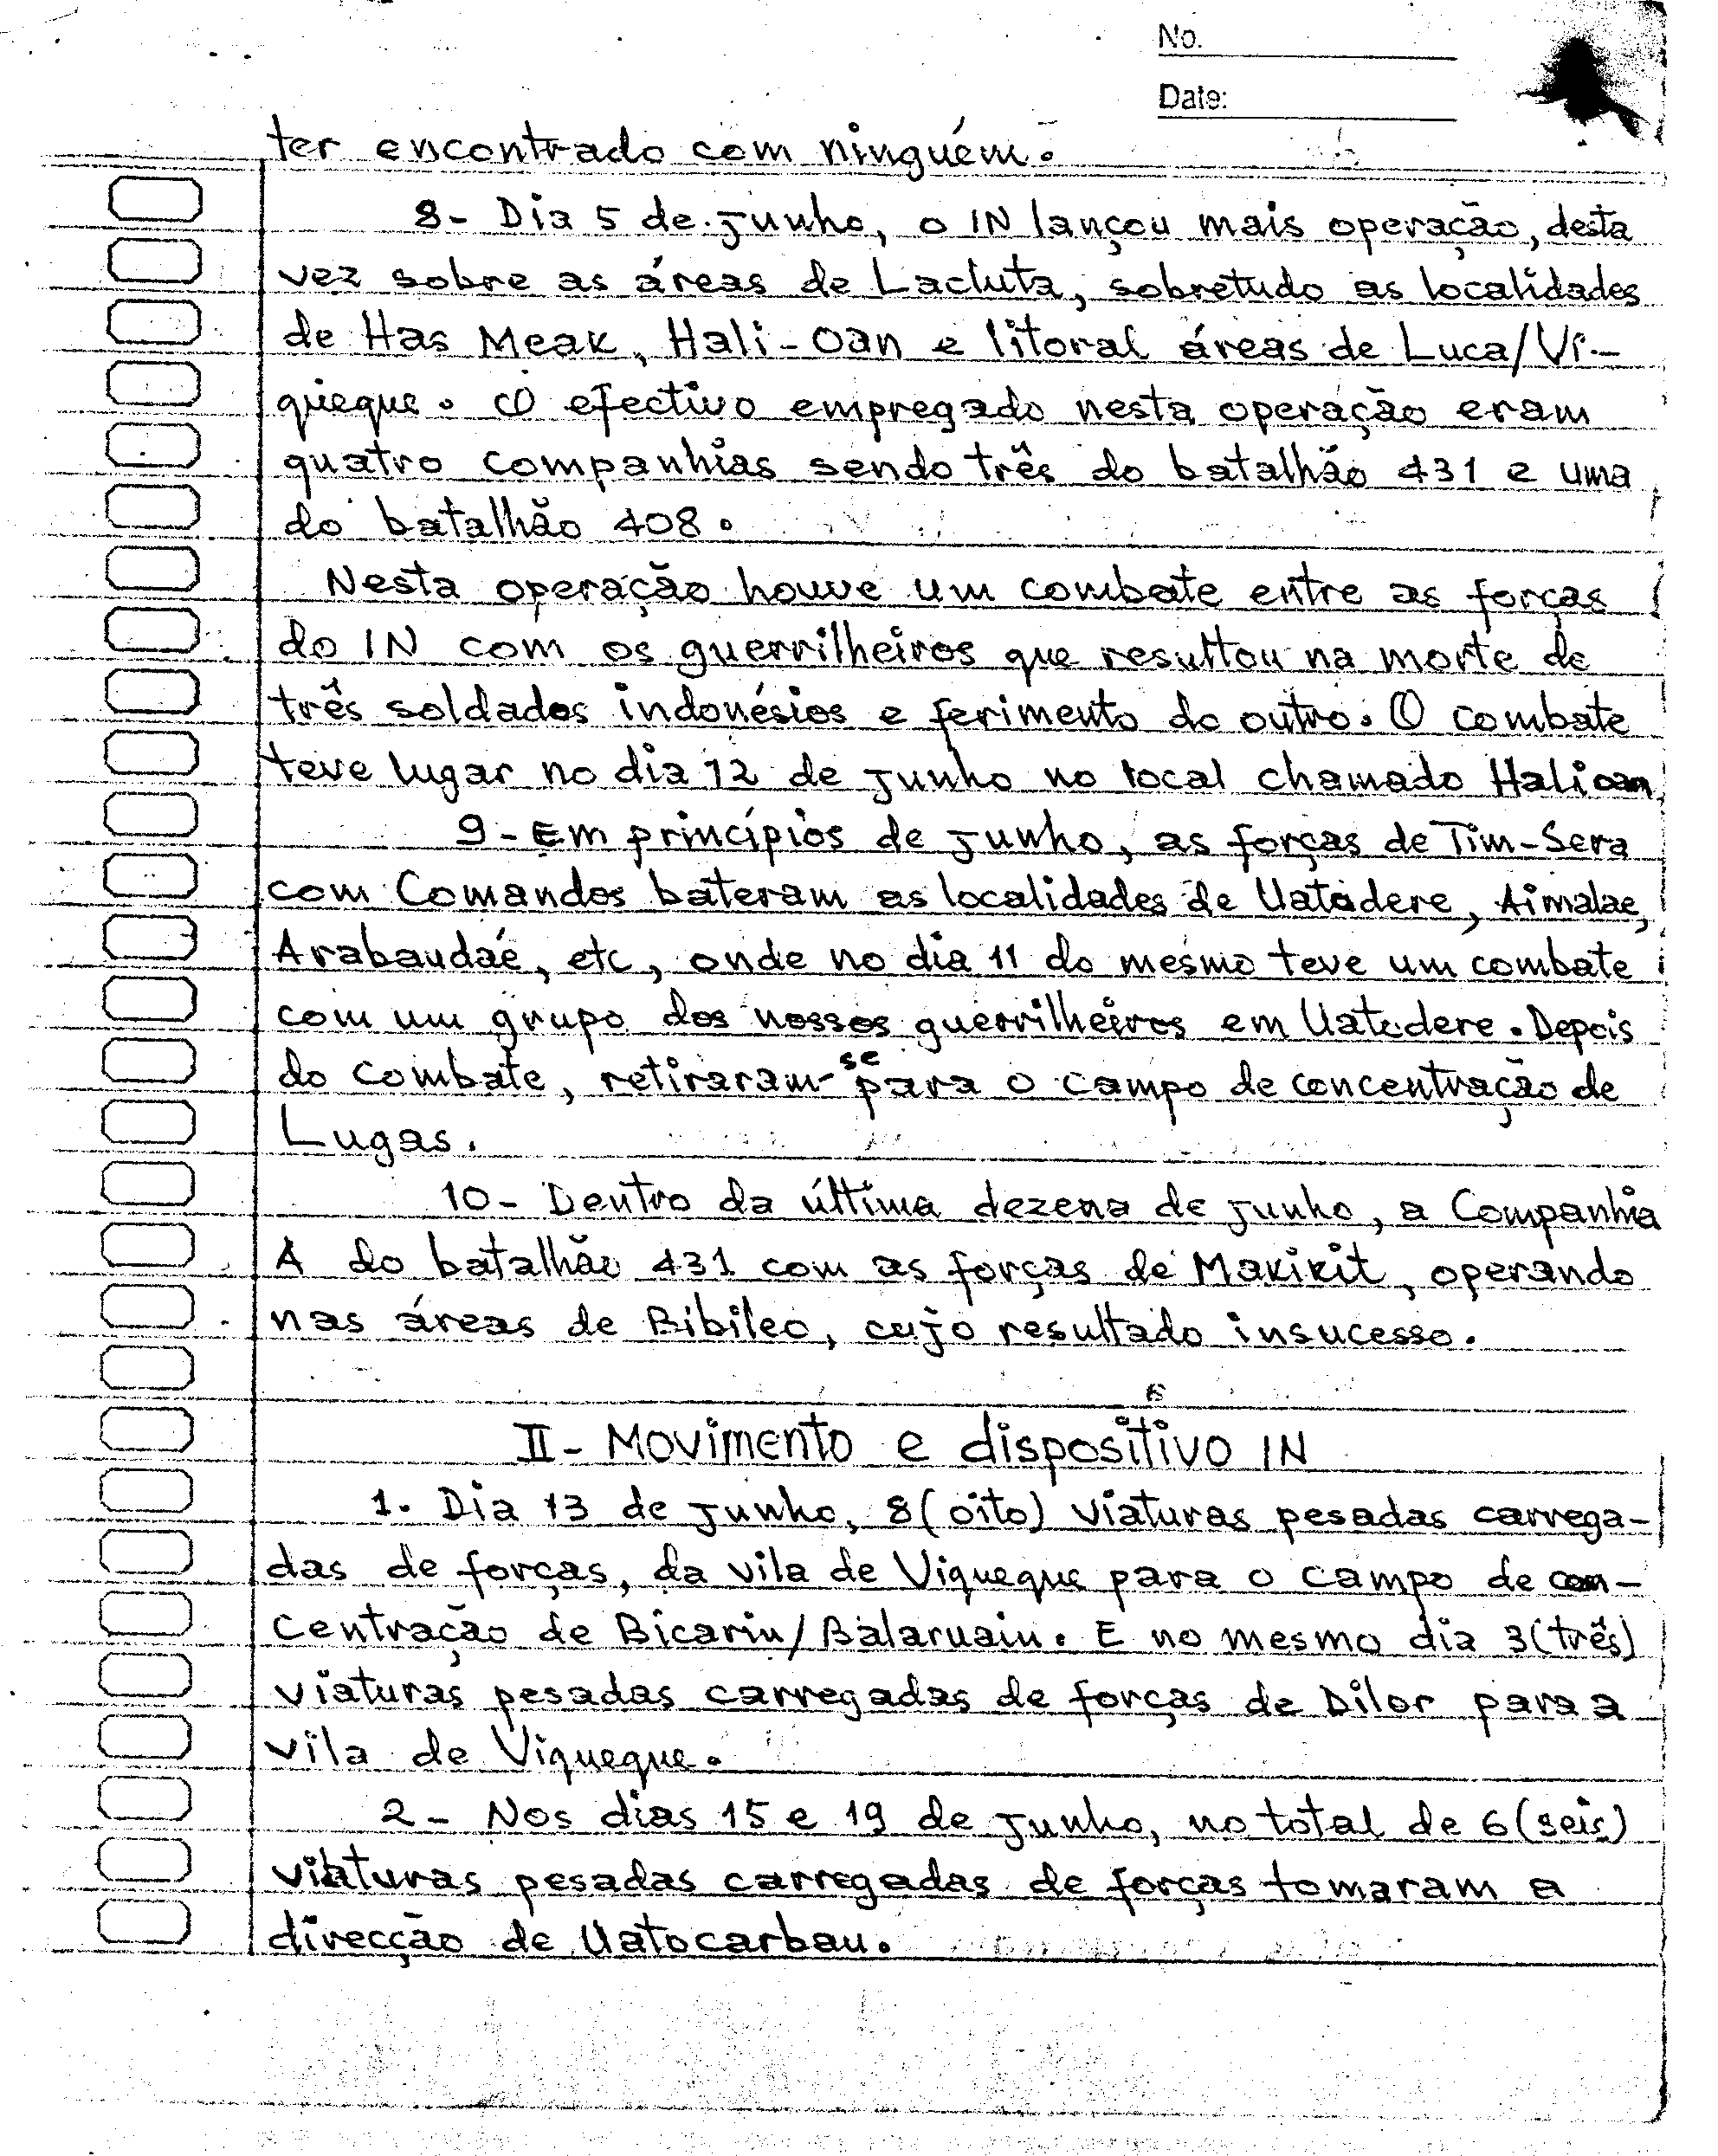 No.
Date:
ter encontrado com ninguém.
8- Dia 5 de junho, o IN lançou mais operação, desta
vez sobre as áreas de Lacluta, sobretudo as localidades
de Has Meak, Hali-Oan e litoral áreas de Luca/Vi-
queque. O efectivo empregado nesta operação eram
quatro companhias sendo três do batalhão 431 e uma
do batalhão 408.
Nesta operação houve um combate entre as forças
do IN com os guerrilheiros que resultou na morte de
três soldados indonésios e ferimento do outro. O combate
teve lugar no dia 12 de junho no local chamado Halioan
9- Em princípios de junho, as forças de Tim-Sera
com Comandos bateram as localidades de Uatodere, Aimalae,
Arabaudáe, etc, onde no dia 11 do mesmo teve um combate
com um grupo dos nossos guerrilheiros em Uatodere. Depois
do combate, retiraram-se para o campo de concentração de
Lugas.
10- Dentro da última dezena de junho, a Companhia
A do batalhão 431 com as forças de Makikit, operando
nas áreas de Bibileo, cujo resultado insucesso.
II- Movimento e dispositivo IN
1- Dia 13 de junho, 8 (oito) viaturas pesadas carrega-
das de forças, da vila de Viqueque para o campo de con-
centração de Bicarin/Balaruain. E no mesmo dia 3 (três)
viaturas pesadas carregadas de forças de Dilor para a
vila de Viqueque.
2- Nos dias 15 e 19 de junho, no total de 6 (seis)
viaturas pesadas carregadas de forças tomaram a
direcção de Uatocarbau.